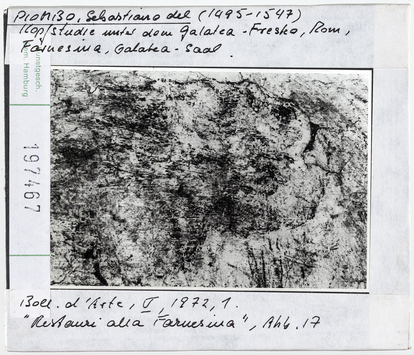 Piombo, Sebastiano del (1495-1547)
Kopfstudie unter dem Galatea-Fresko, Rom,
Farnesina, Galatea-Saal.
Kunstgesch.
Hamburg
197467
Boll. d'Arte, V, 1972, 1.
"Restauri alla Farnesina", Abb. 17